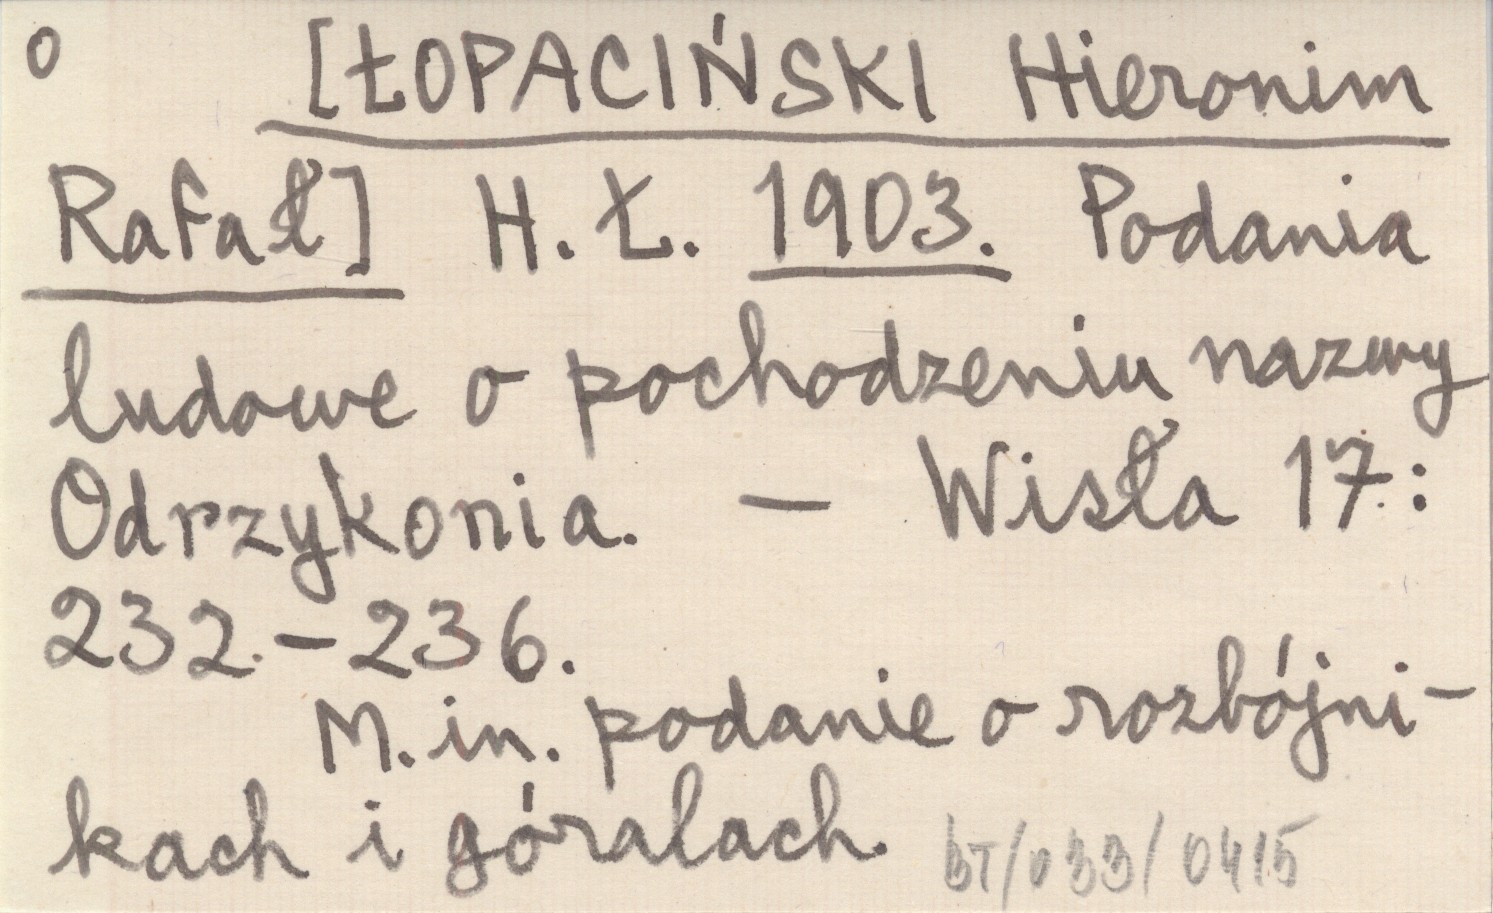 o [ŁOPACIŃSKI Hieronim
Rafał] H. Ł. 1903. Podania
ludowe o pochodzeniu nazwy
Odrzykonia. — Wisła 17:
232.-236.
M. in. podanie o rozbójni-
kach i góralach. BT/033/0415